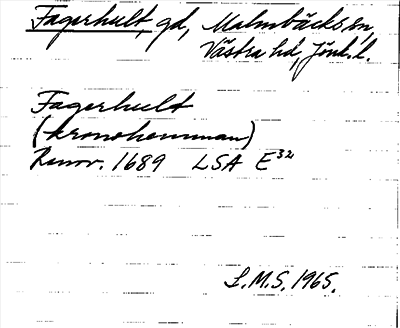 Fagerhult, gd, Malmbäcks sn,
Västra hd, Jönk. l.
Fagerhult
(kronohemman)
Renov. 1689 LSA E³²
L.M.S. 1965.